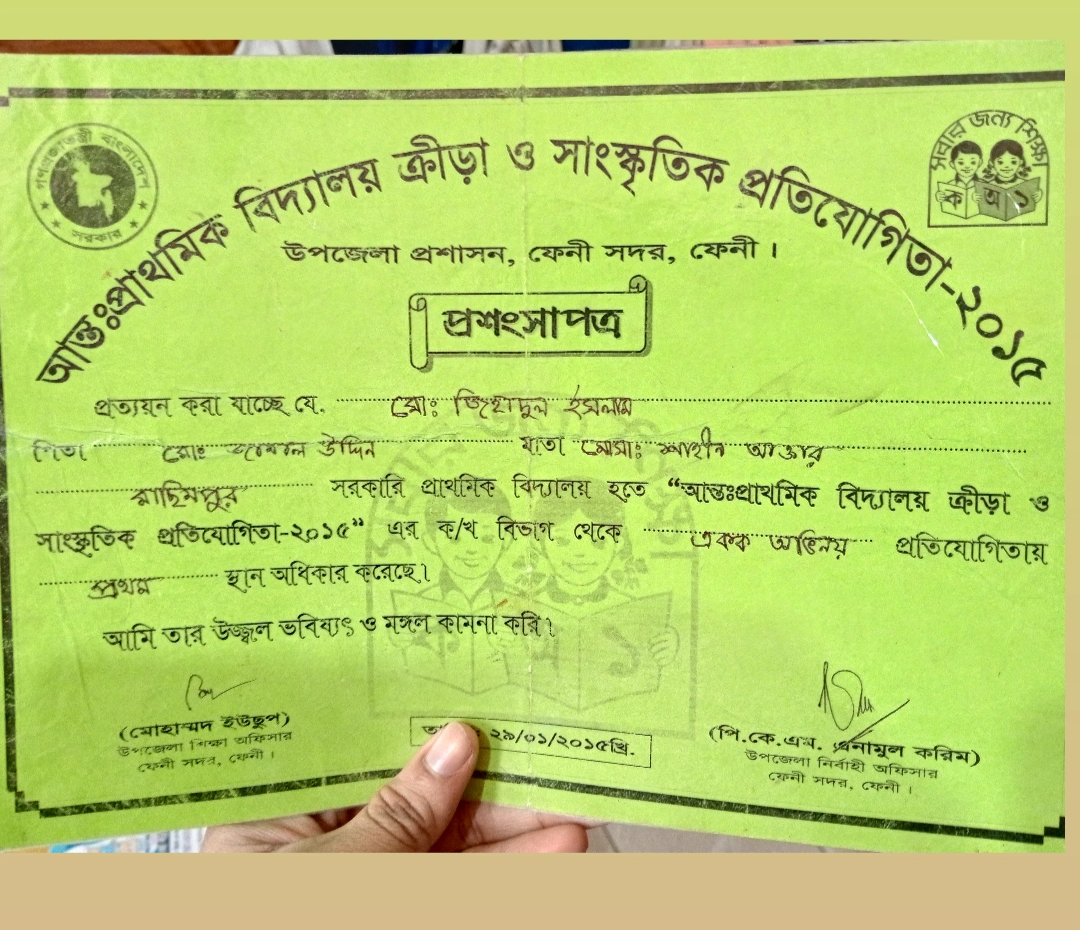 গণপ্রজাতন্ত্রী বাংলাদেশ
সরকার
সবার জন্য শিক্ষা
ক অ ১
আন্তঃপ্রাথমিক বিদ্যালয় ক্রীড়া ও সাংস্কৃতিক প্রতিযোগিতা-২০১৫
উপজেলা প্রশাসন, ফেনী সদর, ফেনী।
প্রশংসাপত্র
প্রত্যয়ন করা যাচ্ছে যে. মোঃ জিহাদুল ইসলাম
পিতা মোঃ জামাল উদ্দিন মাতা মোসাঃ শাহীন আক্তার
মাছিমপুর সরকারি প্রাথমিক বিদ্যালয় হতে “আন্তঃপ্রাথমিক বিদ্যালয় ক্রীড়া ও
সাংস্কৃতিক প্রতিযোগিতা-২০১৫” এর ক/খ বিভাগ থেকে একক অভিনয় প্রতিযোগিতায়
প্রথম স্থান অধিকার করেছে।
আমি তার উজ্জ্বল ভবিষ্যৎ ও মঙ্গল কামনা করি।
(মোহাম্মদ ইউছুপ)
উপজেলা শিক্ষা অফিসার
ফেনী সদর, ফেনী।
২৯/০১/২০১৫খ্রি.
(পি.কে.এম. এনামুল করিম)
উপজেলা নির্বাহী অফিসার
ফেনী সদর, ফেনী।